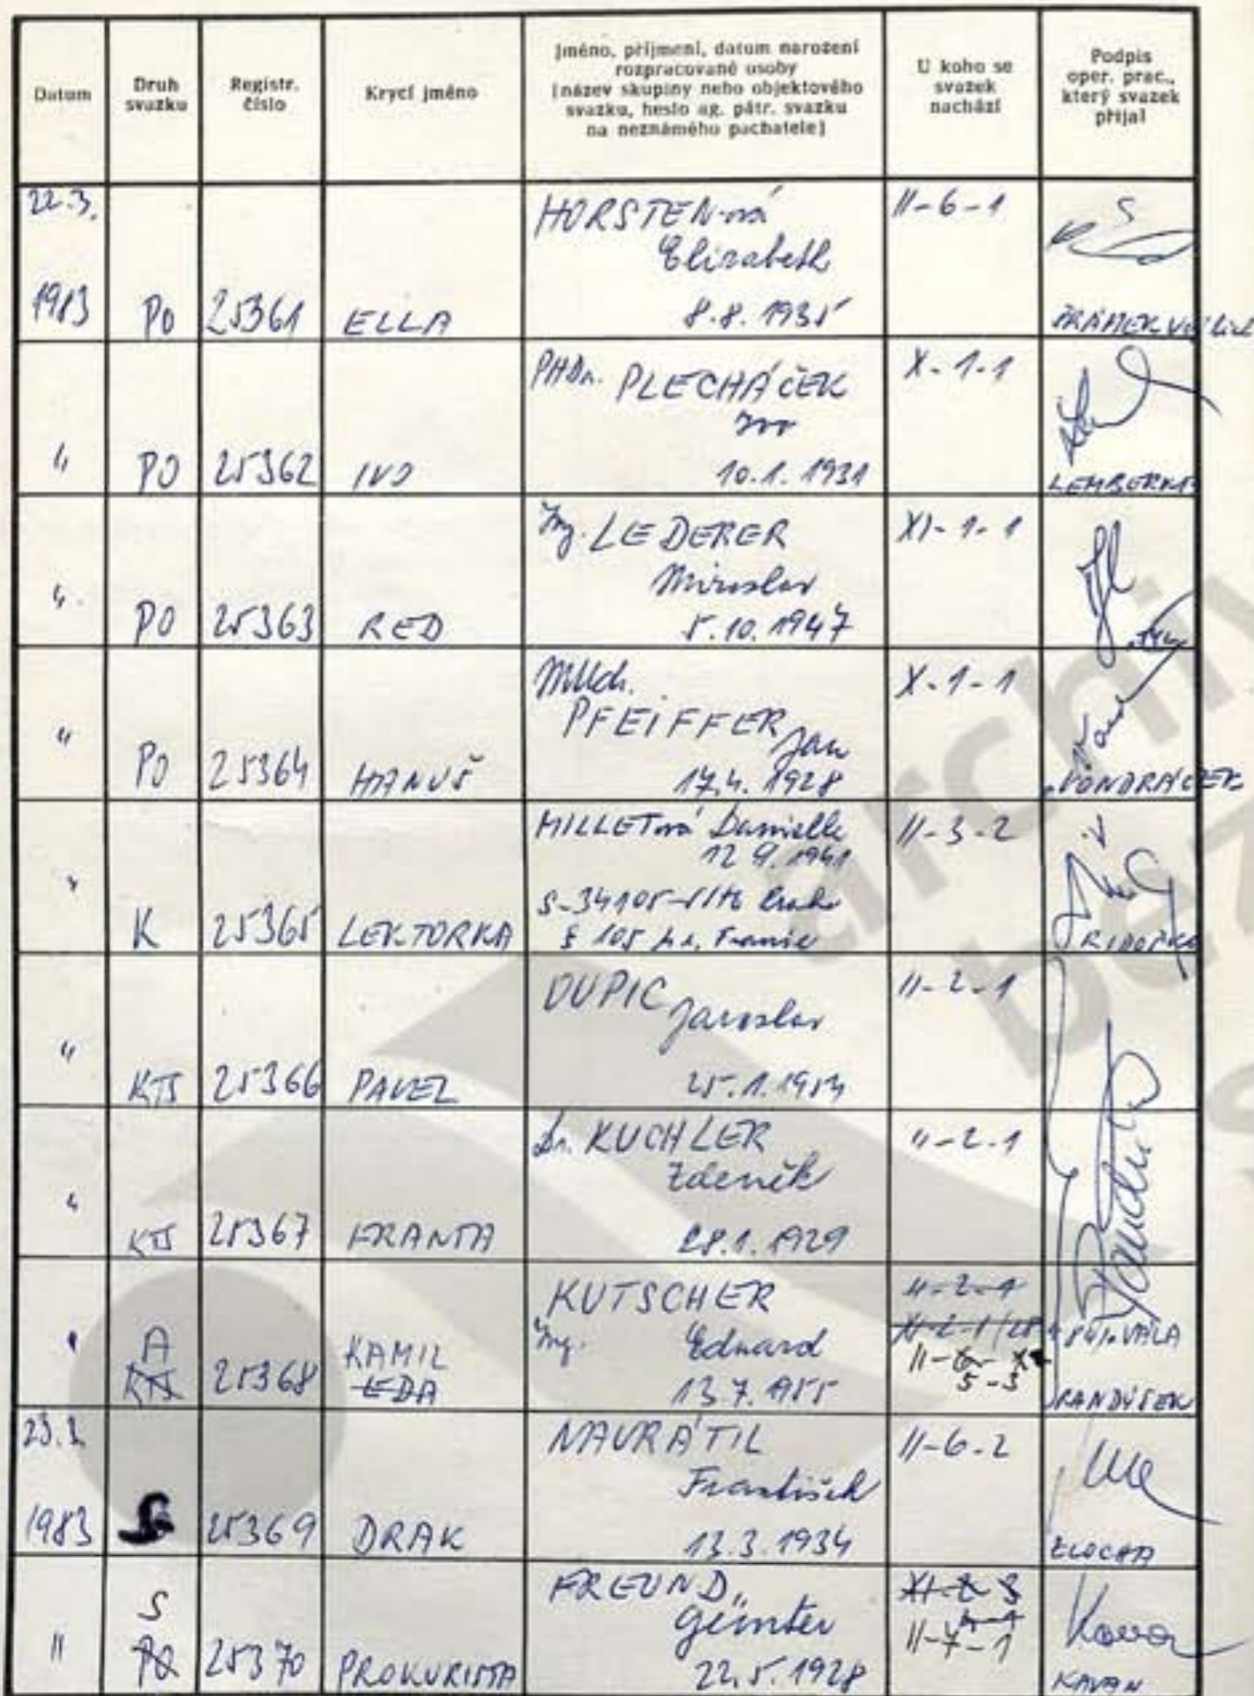 Datum
Druh
svazku
Registr.
číslo
Krycí jméno
Jméno, příjmení, datum narození
rozpracované osoby
(název skupiny nebo objektového
svazku, heslo ag. pátr. svazku
na neznámého pachatele)
U koho se
svazek
nachází
Podpis
oper. prac.,
který svazek
přijal
22.3.
1983
PO
25361
ELLA
HORSTEN-ová
Elizabeth
8.8.1935
II-6-1
"
PO
25362
IVO
PHDr. PLECHÁČEK
Ivo
10.1.1931
X-1-1
LEMBERKA
"
PO
25363
RED
Ing. LEDERER
Miroslav
5.10.1947
XI-1-1
"
PO
25364
HANUŠ
MUDr.
PFEIFFER Jan
17.4.1928
X-1-1
VONDRÁČEK
"
K
25365
LEKTORKA
MILLETová Danielle
12 9.1941
II-3-2
"
KTS
25366
PAVEL
DUPIC Jaroslav
25.1.1954
II-2-1
"
KTS
25367
FRANTA
Dr. KUCHLER
Zdeněk
28.1.1929
II-2-1
"
A
KTS
25368
KAMIL
EDA
KUTSCHER
Ing. Eduard
13.7.1955
II-2-1
5-3
23.3.
1983
S
25369
DRAK
NAVRÁTIL
František
13.3.1934
II-6-2
ZLOCHA
"
S
PO
25370
PROKURISTA
FREUND
Günter
22.5.1928
II-7-1
KAVAN
archiv
bez